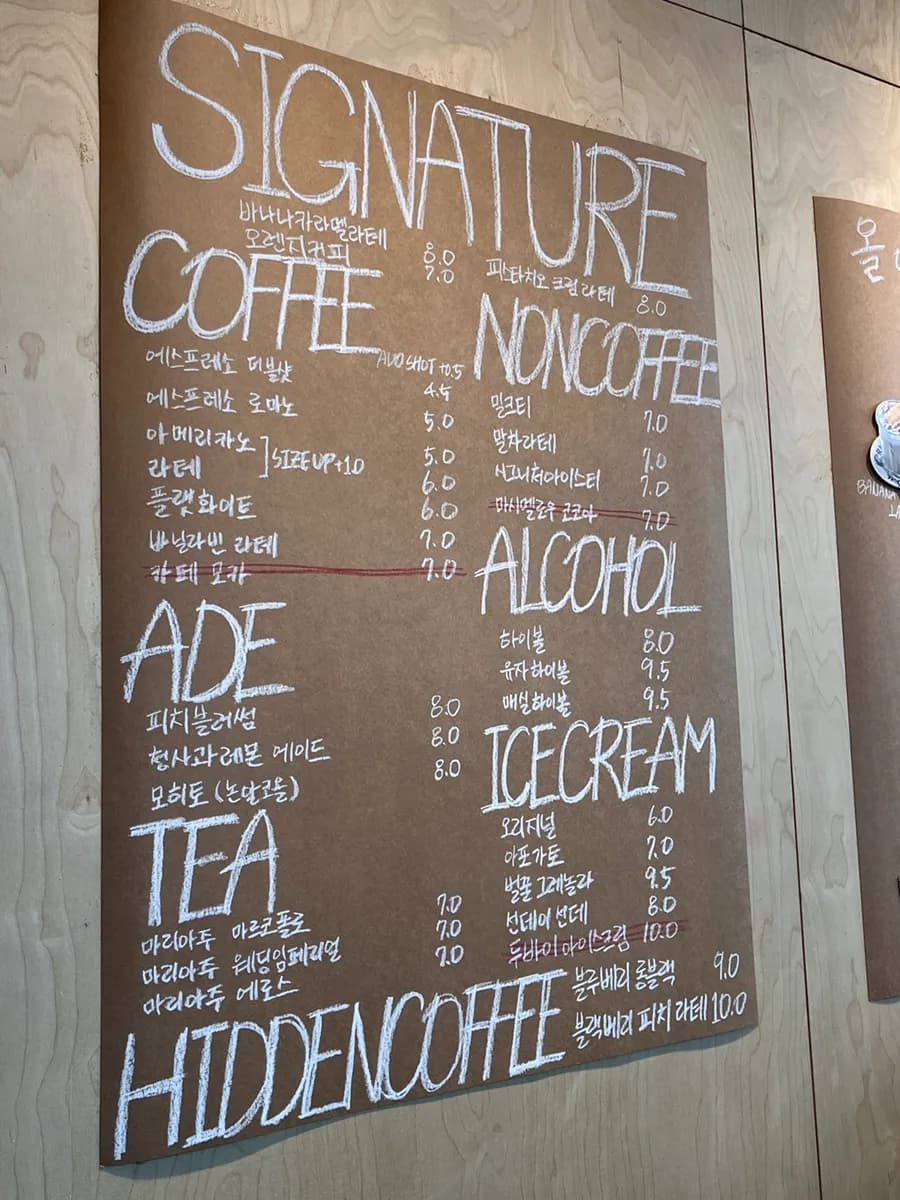 SIGNATURE
바나나카라멜라떼 8.0
오렌지커피 7.0
피스타치오 크림 라떼 8.0
COFFEE
ADD SHOT +0.5
에스프레소 더블샷 4.5
에스프레소 로마노 5.0
아메리카노 5.0
SIZE UP+1.0
라떼 6.0
플랫화이트 6.0
바닐라빈 라떼 7.0
카페 모카 7.0
ADE
피치블러썸 8.0
청사과레몬 에이드 8.0
모히토 (논알코올) 8.0
TEA
마리아쥬 마르코폴로 7.0
마리아쥬 웨딩임페리얼 7.0
마리아쥬 에로스 7.0
NONCOFFEE
밀크티 7.0
말차라떼 7.0
시그니처아이스티 7.0
마시멜로우 코코아 7.0
ALCOHOL
하이볼 8.0
유자하이볼 9.5
매실하이볼 9.5
ICECREAM
오리지널 6.0
아포가토 7.0
벌꿀그래놀라 9.5
선데이 선데 8.0
두바이아이스크림 10.0
HIDDENCOFFEE
블루베리 롱블랙 9.0
블랙베리 피치 라떼 10.0
올
BANANA